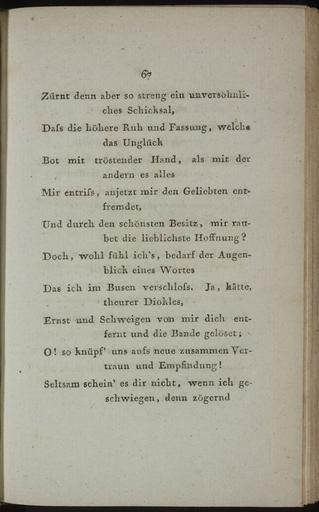 67
Zürnt denn aber so streng ein unversöhnli-
ches Schicksal,
Daſs die höhere Ruh und Fassung, welche
das Unglück
Bot mit tröstender Hand, als mit der
andern es alles
Mir entriſs, anjetzt mir den Geliebten ent-
fremdet,
Und durch den schönsten Besitz, mir rau-
bet die lieblichste Hoffnung?
Doch, wohl fühl ich's, bedarf der Augen-
blick eines Wortes
Das ich im Busen verschloſs. Ja, hätte,
theurer Diokles,
Ernst und Schweigen von mir dich ent-
fernt und die Bande gelöset;
O! so knüpf' uns aufs neue zusammen Ver-
traun und Empfindung!
Seltsam schein' es dir nicht, wenn ich ge-
schwiegen, denn zögernd